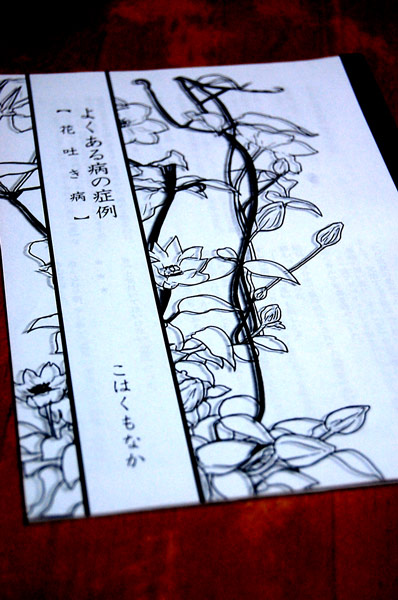 よくある病の症例
【花吐き病】
こはくもなか